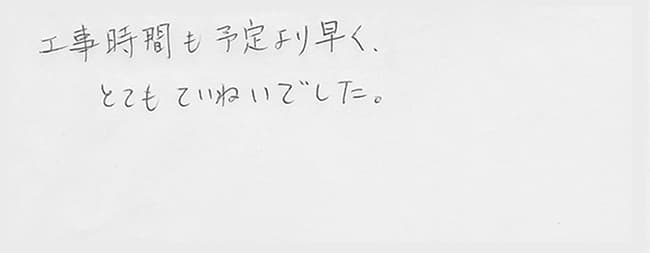 工事時間も予定より早く、
とてもていねいでした。